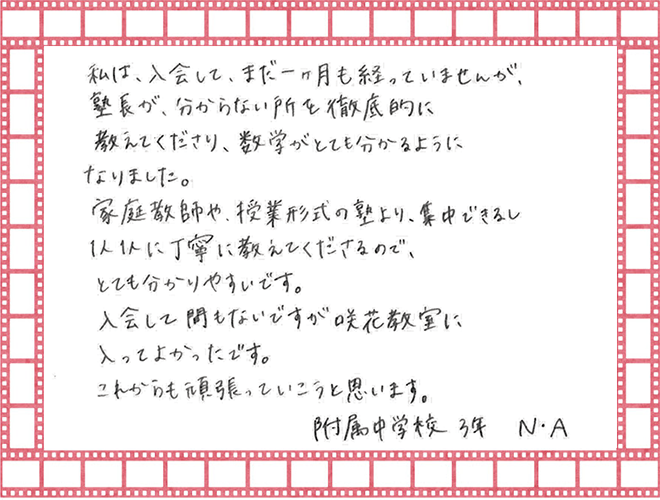 私は、入会して、まだ一ヶ月も経っていませんが、
塾長が、分からない所を徹底的に
教えてくださり、数学がとても分かるように
なりました。
家庭教師や、授業形式の塾より、集中できるし
1人1人に丁寧に教えてくださるので、
とても分かりやすいです。
入会して間もないですが咲花教室に
入ってよかったです。
これからも頑張っていこうと思います。
附属中学校 3年 N・A